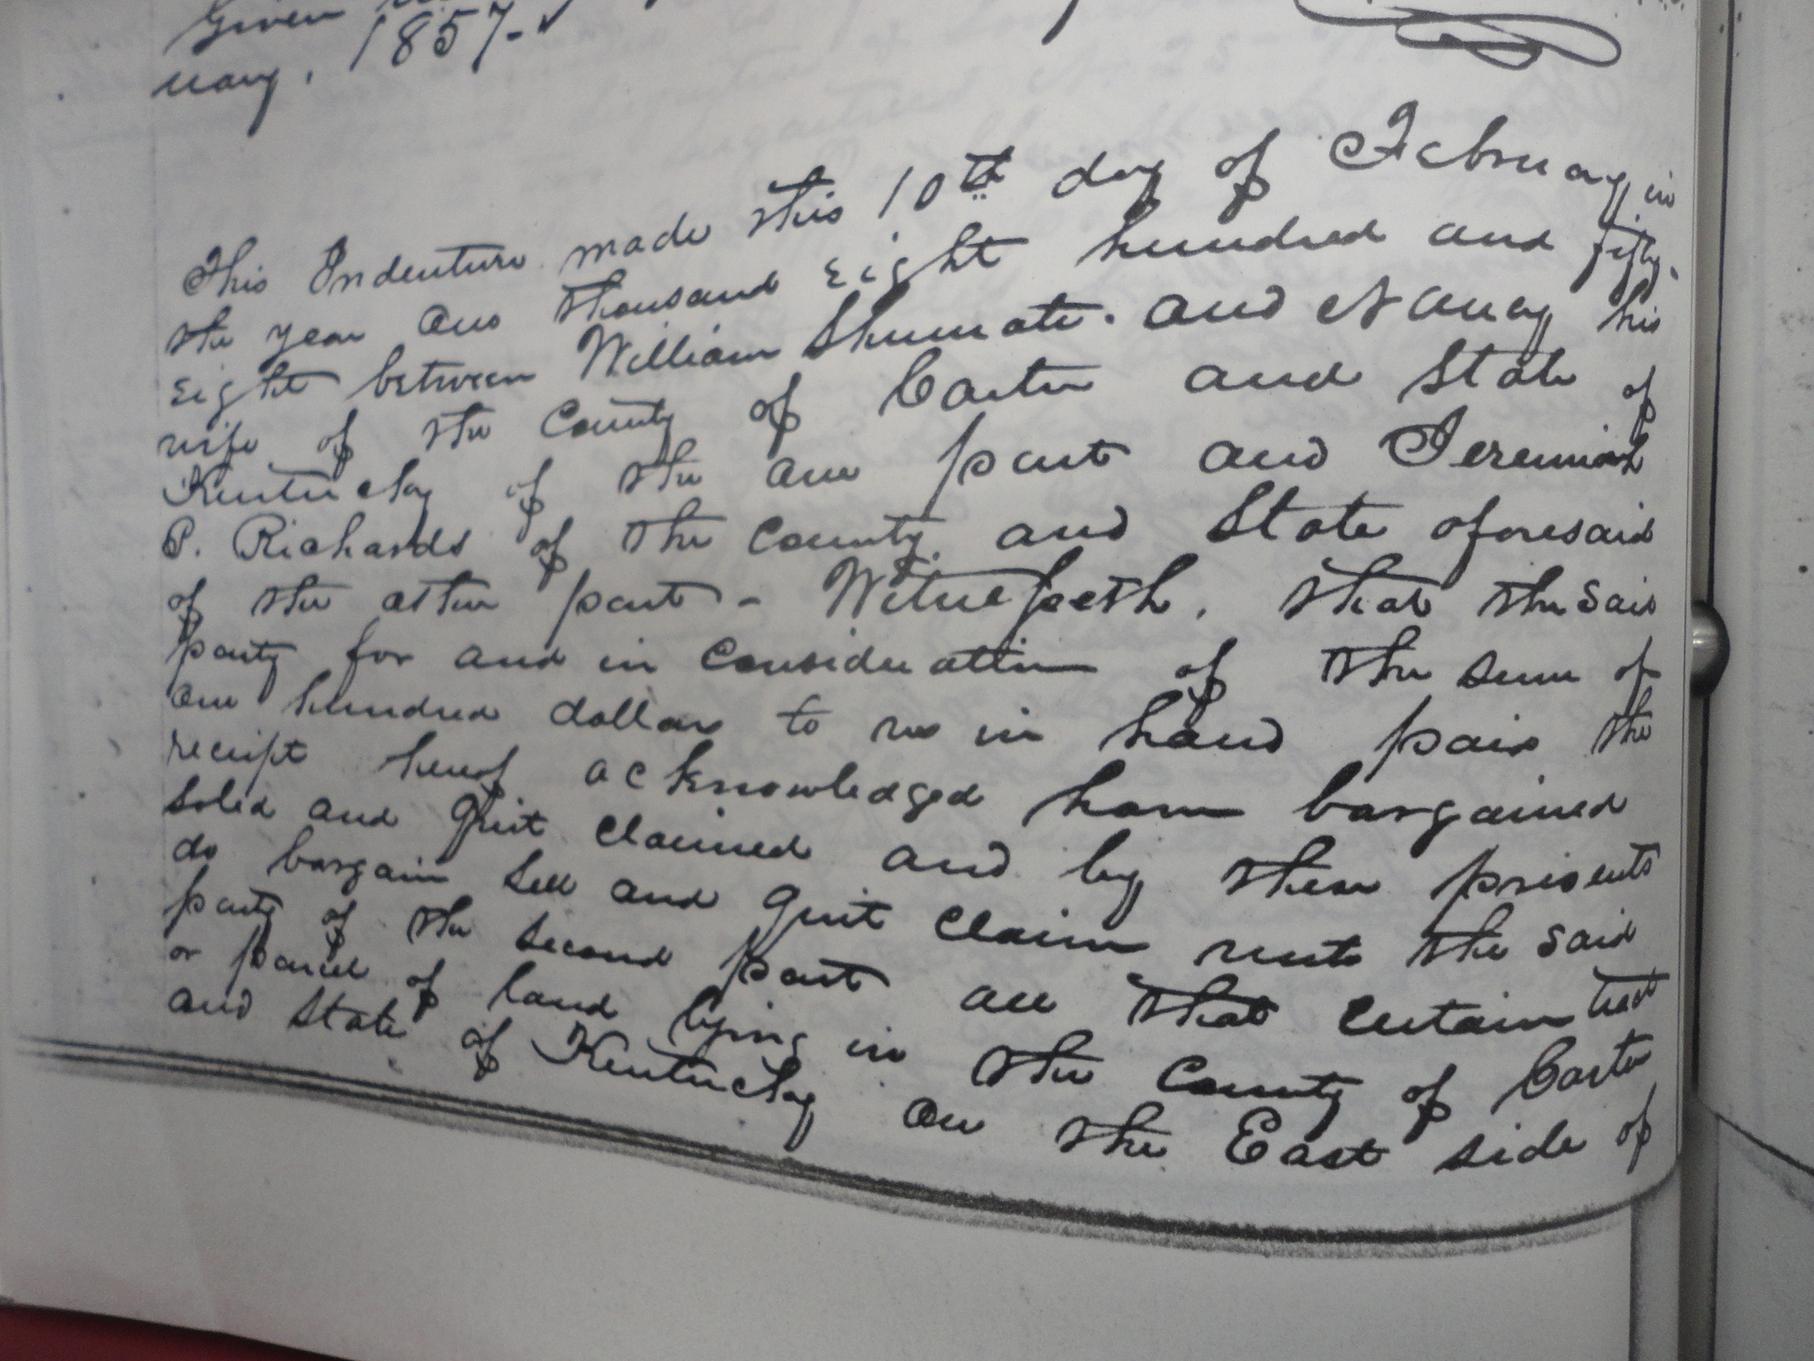 Given
uary, 1857-
This Indenture made this 10th day of February in
the year one thousand eight hundred and fifty-
eight between William Shumate. and Nancy his
wife of the County of Carter and State of
Kentucky of the one part and Jeremiah
P. Richards of the County and State aforesaid
of the other part - Witnesseth, that the said
party for and in consideration of the sum of
one hundred dollars to us in hand paid the
receipt hereof acknowledged have bargained
soled and quit claimed and by these presents
do bargain sell and quit claim unto the said
party of the second part all that certain tract
or parcel of land lying in the County of Carter
and State of Kentucky on the East side of